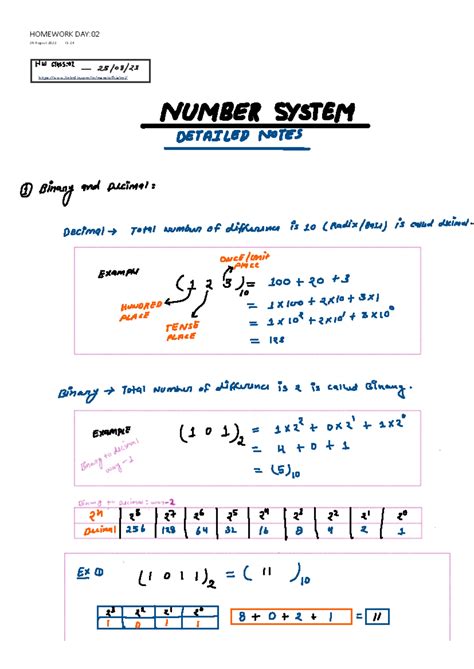 HOMEWORK DAY:02
NW CLASS:02 — 25/08/23
NUMBER SYSTEM
DETAILED NOTES
① Binary and Decimal:
Decimal → Total number of difference is 10 (Radix/Base) is called decimal.
ONCE/Unit PLACE
EXAMPLE (1 2 3)10 = 100 + 20 + 3
HUNDRED PLACE = 1x100 + 2x10 + 3x1
TENSE PLACE = 1x10² + 2x10¹ + 3x10⁰
= 123
Binary → Total Number of difference is 2 is called Binary.
EXAMPLE (1 0 1)2 = 1x2² + 0x2¹ + 1x2⁰
Binary to decimal way-1 = 4 + 0 + 1
= (5)10
Binary to decimal: way-2
2ⁿ 2⁸ 2⁷ 2⁶ 2⁵ 2⁴ 2³ 2² 2¹ 2⁰
Decimal 256 128 64 32 16 8 4 2 1
Ex ① (1 0 1 1)2 = ( 11 )10
2³ 2² 2¹ 2⁰
1 0 1 1 8 + 0 + 2 + 1 = 11